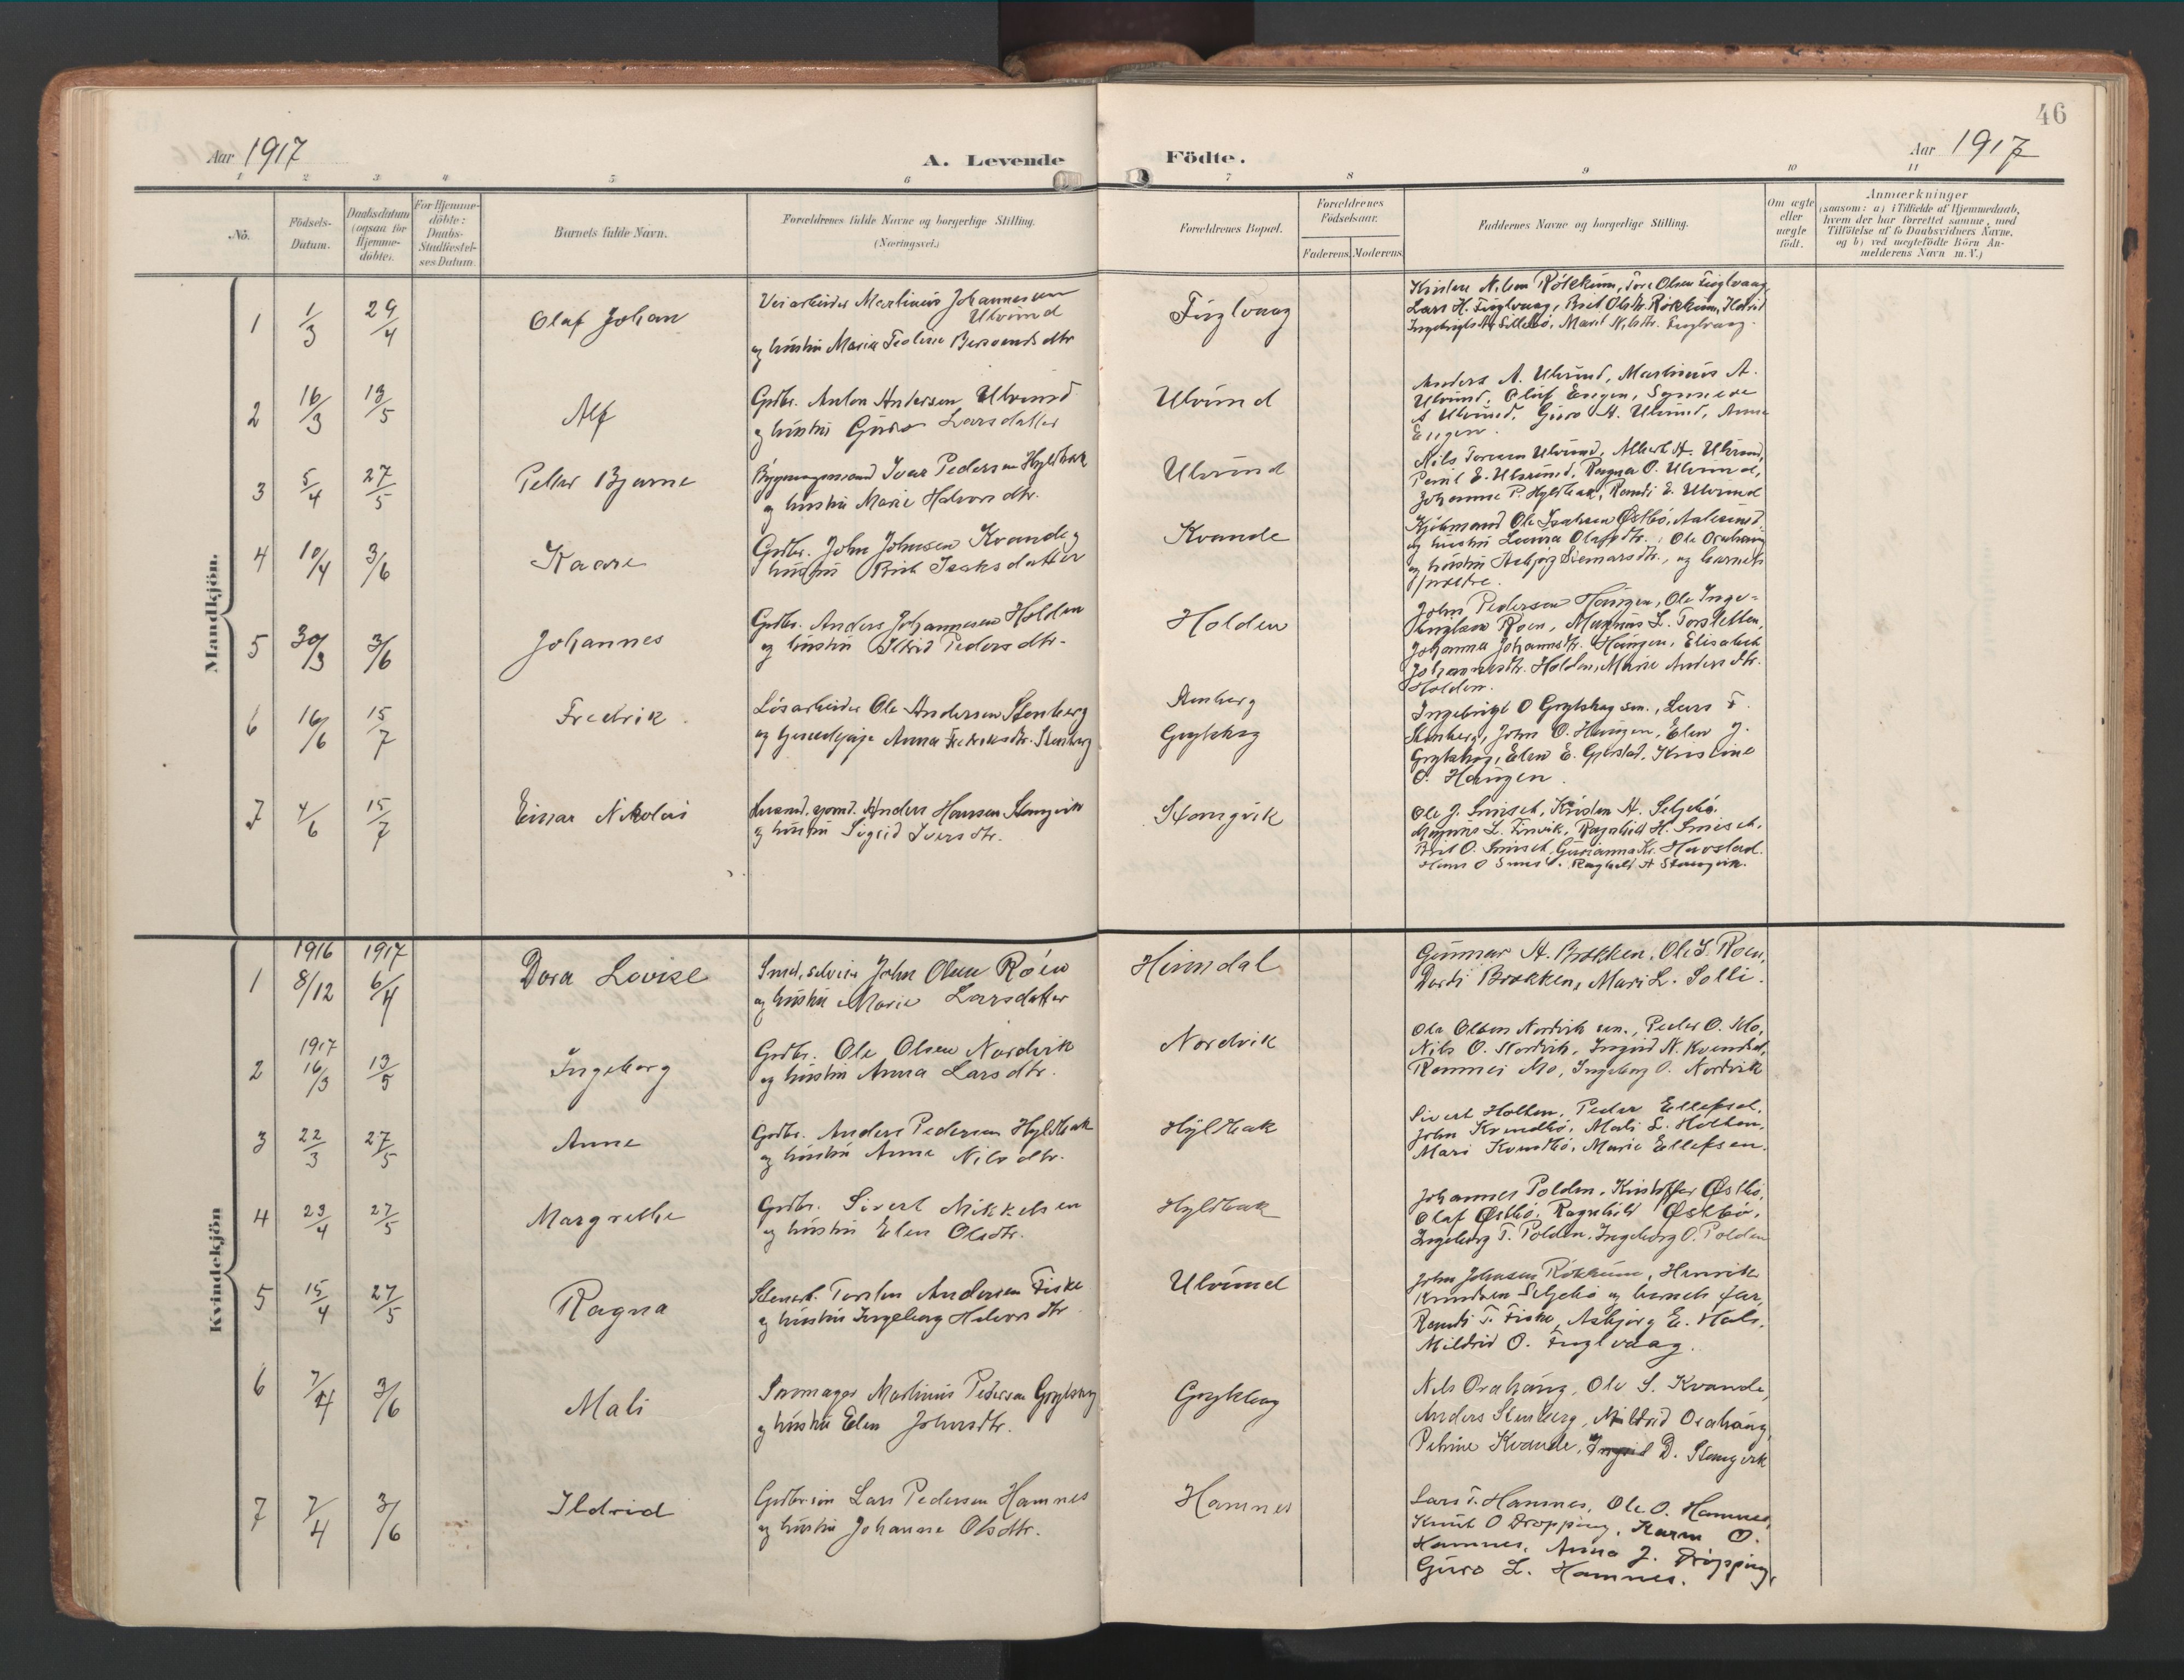 46
Aar 1917
A. Levende Födte.
Aar 1917
1 2 3 4 5 6 7 8 9 10 11
No.
Födsels-Datum.
Daabsdatum (ogsaa for Hjemme-döbte).
For Hjemme-döbte: Daabs-Stadfæstel-ses Datum.
Barnets fulde Navn.
Forældrenes fulde Navne og borgerlige Stilling.
(Næringsvei.)
Forældrenes Bopæl.
Forældrenes Födselsaar.
Faderens. Moderens.
Faddernes Navne og borgerlige Stilling.
Om ægte eller uægte födt.
Anmærkninger
(saasom: a) i Tilfælde af Hjemmedaab, hvem der har forrettet samme, med Tilföielse af to Daabsvidners Navne, og b) ved uægtefödte Börn An-melderens Navn m. V.)
Mandkjön.
1 1/3 29/4 Olaf Johan
Veiarbeider Martinus Johannesen
Ulvund
og hustru Maria
Fuglvaag
Kristen Nilsen Rökkum, Tore Olsen Fuglvaag
Lars H. Fuglvaag, Brit Olsdtr. Rökkum, Ildrid
Marit Nilsdtr. Fuglvaag.
2 16/3 13/5 Alf
Grdbr. Anton Andersen Ulvund
og hustru Guro Larsdatter
Ulvund
Anders A. Ulvund, Martinus A.
Ulvund, Oluf Engen, Synneve
A Ulvund, Guro A. Ulvund, Anna
Engen.
3 5/4 27/5 Petter Bjarne
Bygningsmand Ivar Pedersen Hyldbak
og hustru Marie Halvorsdtr.
Ulvund
Nils Toresen Ulvund, Albert A. Ulvund,
E. Ulvund, Ragna O. Ulvund,
Johanna P. Hyldbak, Randi E. Ulvund
4 10/4 3/6 Kaare
Grdbr. John Johnsen Kvande og
hustru Brit Isaksdatter
Kvande
Kjöbmand Ole Isaksen Østbö, Aalesund
og hustru Laura Olafsdtr., Ole Orahaug
og hustru Asbjørg, og barnets
forældre.
5 30/3 3/6 Johannes
Grdbr. Anders Johannesen Holden
og hustru Ildrid Pedersdtr.
Holden
John Pedersen Haugen, Ole Inge-
brigtsen Roen, Magnus L. Torsletten,
Johanna Johannsdtr. Haugen, Elisabeth
Johannesdtr. Holden, Marie Andersdtr.
Holden.
6 16/6 15/7 Fredrik
Lösarbeider Ole Andersen Stenberg
og Anna Fredriksdtr. Stenberg
Stenberg
Grytskog
Ingebrigt O Grytskog sen., Lars F.
Stenberg, John O. Haugen, Elen J.
Grytskog, Elen E. Gjerstad, Kristine
O. Haugen.
7 4/6 15/7 Einar Nikolai
Anders Hansen Stangvik
og hustru Sigrid Iversdtr.
Stangvik
Ole J. Smisch, Kristen A. Seljebö.
Magnus L. Finvik, Ragnhild H. Smisch.
Brit O. Smisch, Gurianna Kr. Havstad.
Hans O Ragnhild A Stangvik.
Kvindekjön
1916 1917
1 8/12 6/4 Dora Lovise
Smed, John Olsen Roen
og hustru Marie Larsdatter
Hinndal
Gunnar A. Brøkken, Ole J. Roen,
Dordi Brøkken, Mari L. Solli.
1917
2 16/3 13/5 Ingeborg
Grdbr. Ole Olsen Nordvik
og hustru Anna Larsdtr.
Nordvik
Ole Olsen Nordvik sen., Peder O. Mo,
Nils O. Nordvik, Ingrid N. Kvendbö,
Rønnei Mo, Ingeborg O. Nordvik
3 22/3 27/5 Anne
Grdbr. Anders Pedersen Hyldbak
og hustru Anne Nilsdtr.
Hyldbak
Sivert Holten, Peder Ellefsen,
John Kvendbö, Mali S. Holten,
Mari Kvendbö, Marie Ellefsen.
4 23/4 27/5 Margrethe
Grdbr. Sivert Mikkelsen
og hustru Elen Olsdtr.
Hyldbak
Johannes Polden, Kristoffer Østbö,
Olaf Østbö, Ragnhild Østbö,
Ingeborg T. Polden, Ingeborg O. Polden
5 15/4 27/5 Ragna
Stenarb. Torsten Andersen Fiske
og hustru Ingeborg Halvorsdtr
Ulvund
John Johnsen Rökkum, Henrik
Knudsen Seljebö og barnets far,
Randi T. Fiske, Asbjørg E. Hals,
Mildrid O. Fuglvaag.
6 7/4 3/6 Mali
Skomager Martinus Pedersen Grytskog
og hustru Elen Johnsdtr.
Grytskog
Nils Orahaug, Ole S. Kvande,
Anders Stenberg, Mildrid Orahaug,
Petrine Kvande, Ingrid D. Stangvik
7 7/4 3/6 Ildrid
Grdbr.sön Lars Pedersen Hamnes
og hustru Johanna Olsdtr.
Hamnes
Lars T. Hamnes, Ole O. Hamnes,
Knut O Drøpping, Karen O.
Hamnes, Anna J. Drøpping,
Guro L. Hamnes.